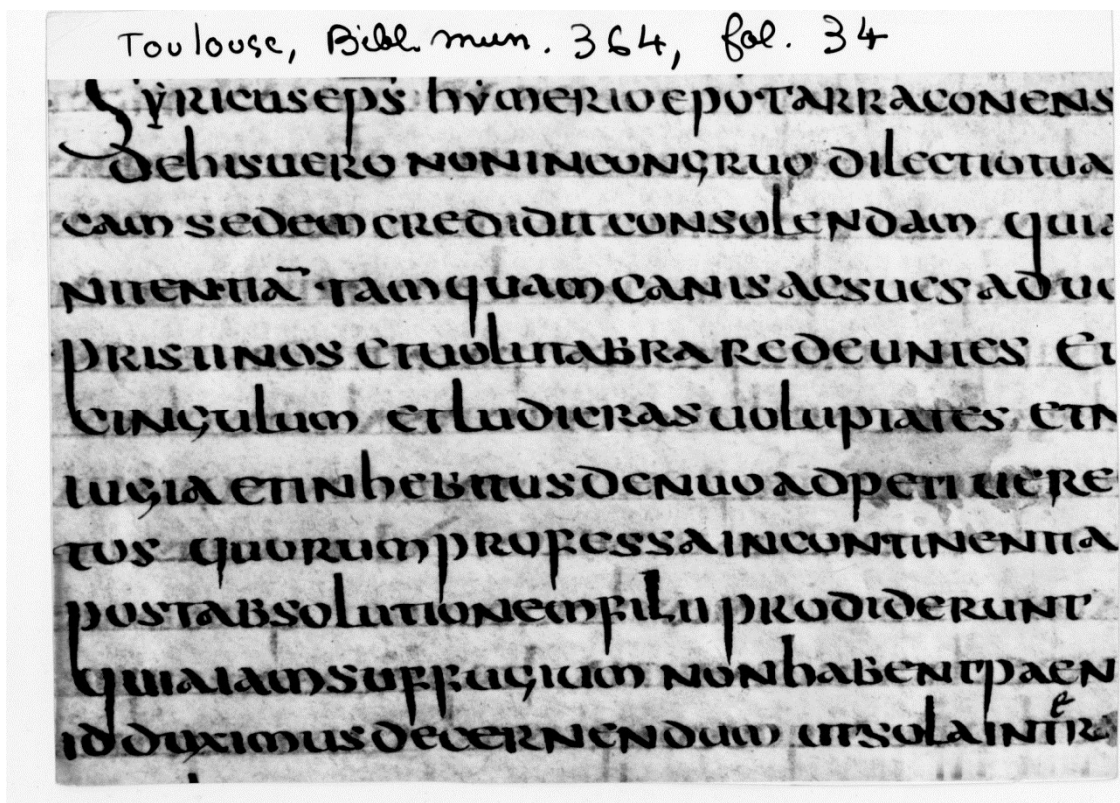 Toulouse, Bibl. mun. 364, fol. 34
SYRICUS EPS HYMERIO EPO TARRACONENS
DE HIS UERO NON INCONGRUO DILECTIO TUA
CAM SEDEM CREDIDIT CONSOLENDAM QUIA
NITENTIĀ TAMQUAM CANIS AC SUES AD UO
PRISTINOS ET UOLUTABRA REDEUNTES ET
CINGULUM ET LUDICRAS UOLUPTATES ET N
IUGIA ET INHEBITUS DENUO ADPETIUERE
TUS QUORUM PROFESSA INCONTINENTIA
POST ABSOLUTIONEM FILII PRODIDERUNT
QUIA IAM SUFFUGIUM NON HABENT PAEN
ID DUXIMUS DECERNENDUM UT SOLA INTRE